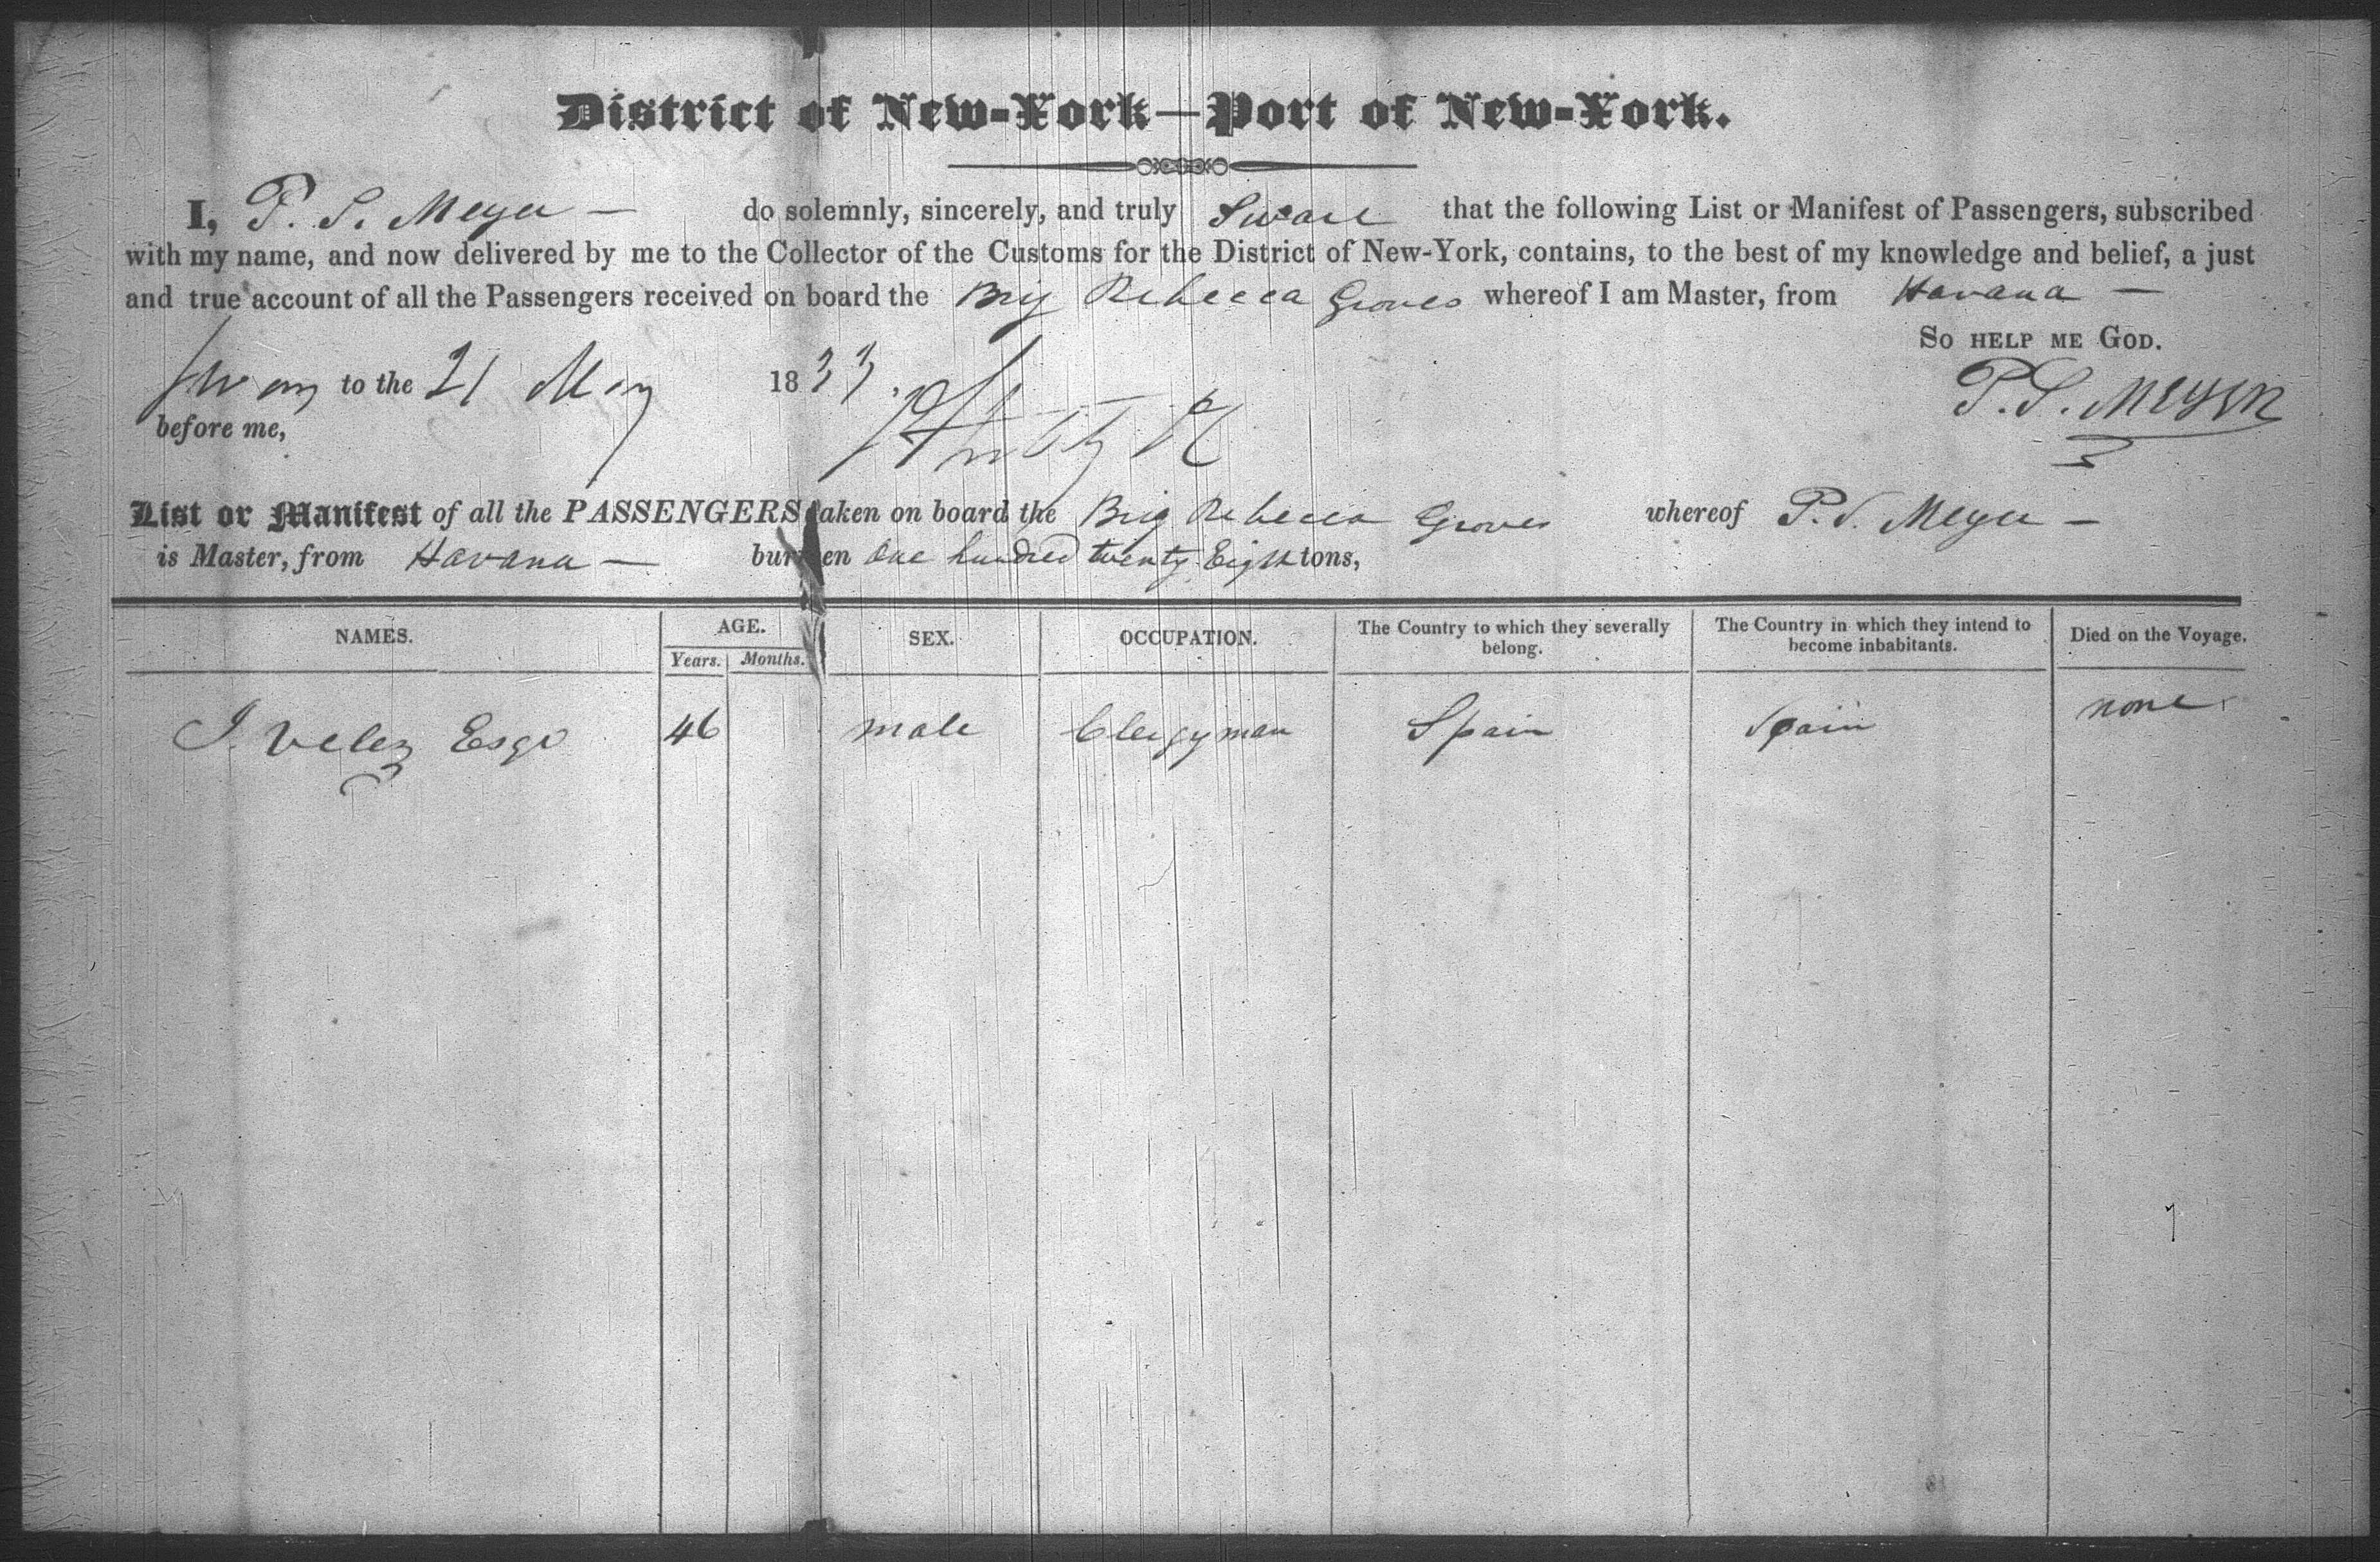 District of New-York—Port of New-York.
I, P. S. Meyer — do solemnly, sincerely, and truly Swear that the following List or Manifest of Passengers, subscribed
with my name, and now delivered by me to the Collector of the Customs for the District of New-York, contains, to the best of my knowledge and belief, a just
and true account of all the Passengers received on board the Brig Rebecca Groves whereof I am Master, from Havana —
So help me God.
Sworn to the 21 May 1833.
P. S. Meyer
before me,
List or Manifest of all the PASSENGERS taken on board the Brig Rebecca Groves whereof P. S. Meyer —
is Master, from Havana — burthen One hundred twenty Eight tons,
NAMES. AGE. Years. Months. SEX. OCCUPATION. The Country to which they severally belong. The Country in which they intend to become inhabitants. Died on the Voyage.
J. Velez Esqr 46 male Clergyman Spain Spain none